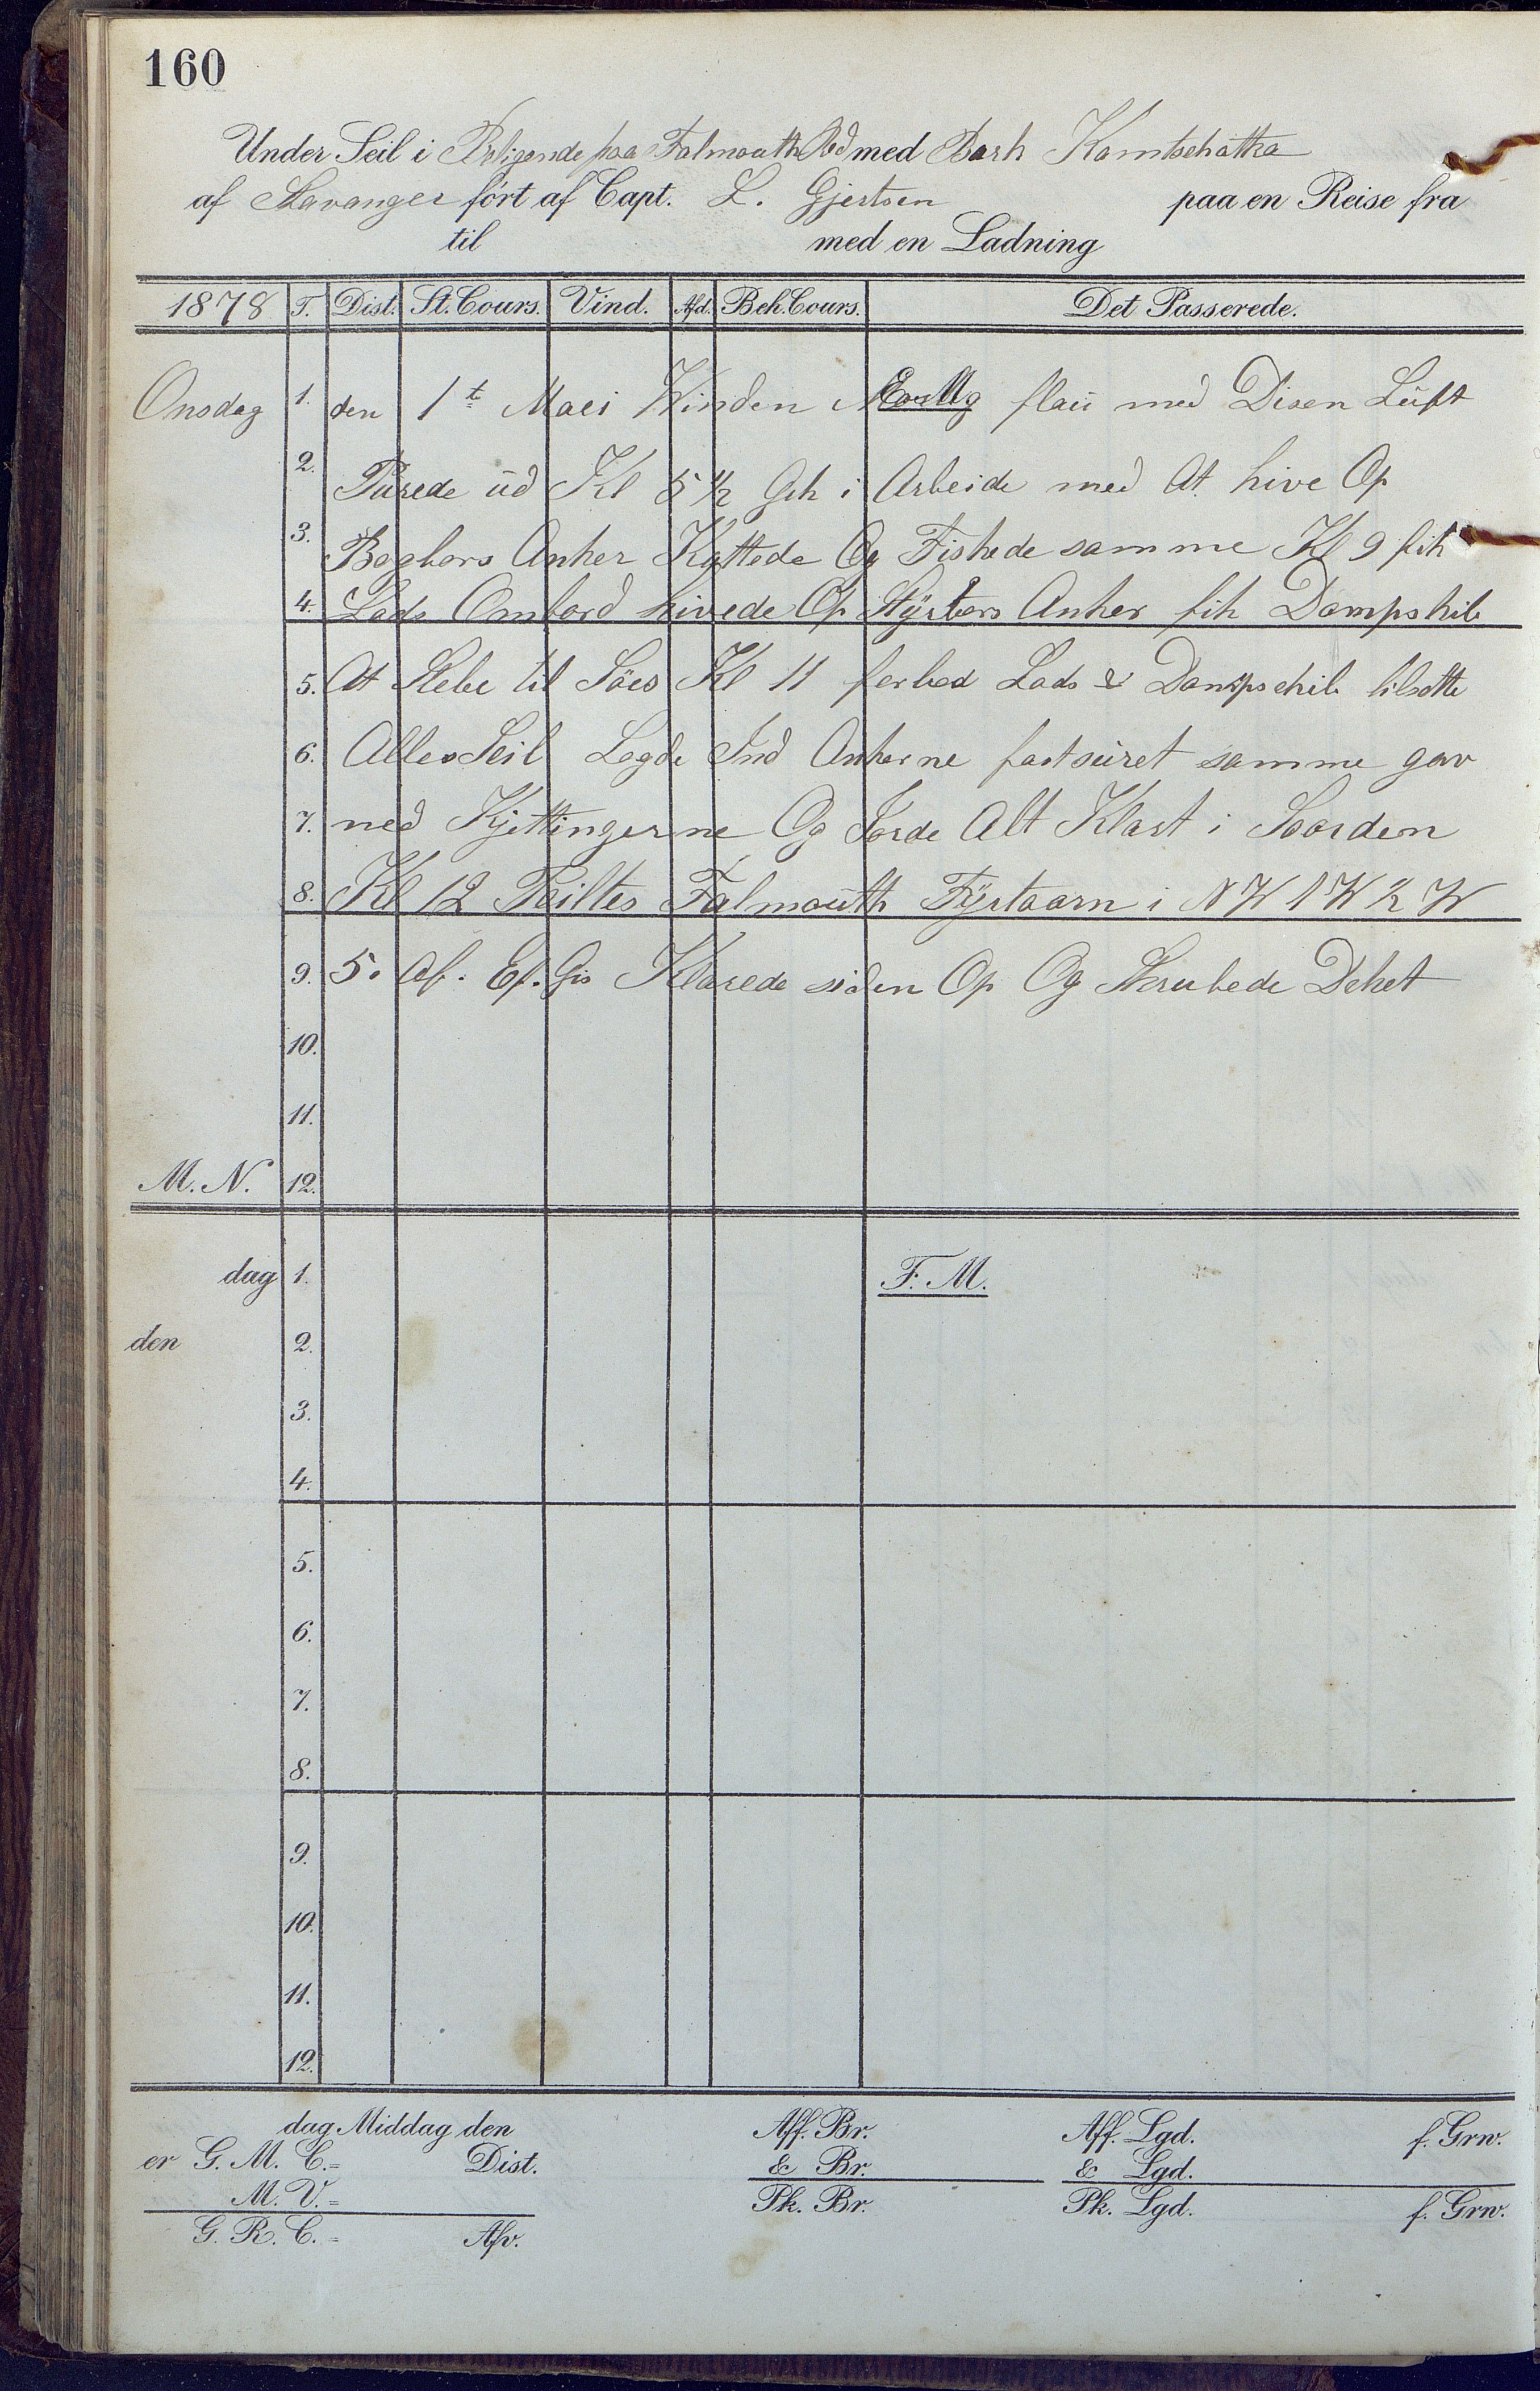 160
Under Seil i Beligende paa Falmouth Red med Bark Kamtschatka
af Stavanger fört af Capt. L. Gjertsen paa en Reise fra
til med en Ladning
1878 T. Dist. St. Cours. Vind. Afd. Beh. Cours. Det Passerede.
Onsdag 1. den 1t Maei Winden flaü med Disen Lüft
2. Purede üd Kl 5 1/2 Gik i Arbeide med At hive Op
3. Bagbors Anker Kattede Og Fiskede samme Kl 9 fik
4. Lods Ombord hivede Op Styrbors Anker fik Dampskib
5. At Slebe til Söes Kl 11 forlod Lods & Dampskib tilsatte
6. Alle Seil Lagde Ind Ankerne fastsüret samme gav
7. ned Kjettingerne Og Jorde Alt Klart i
8. Kl 12 Peiltes Falmoüth Fyrtaarn i N W 1/2 W
9. 5. Af. Ef. Gis Klarede siden Op Og Skrubede Deket
10.
11.
M. N. 12.
dag 1. F. M.
den 2.
3.
4.
5.
6.
7.
8.
9.
10.
11.
12.
dag Middag den Aff. Br. Aff. Lgd. f. Grw.
er G. M. C.= Dist. & Br. & Lgd.
M. V.=
Pk. Br. Pk. Lgd. f. Grw.
G. R. C.= Afv.